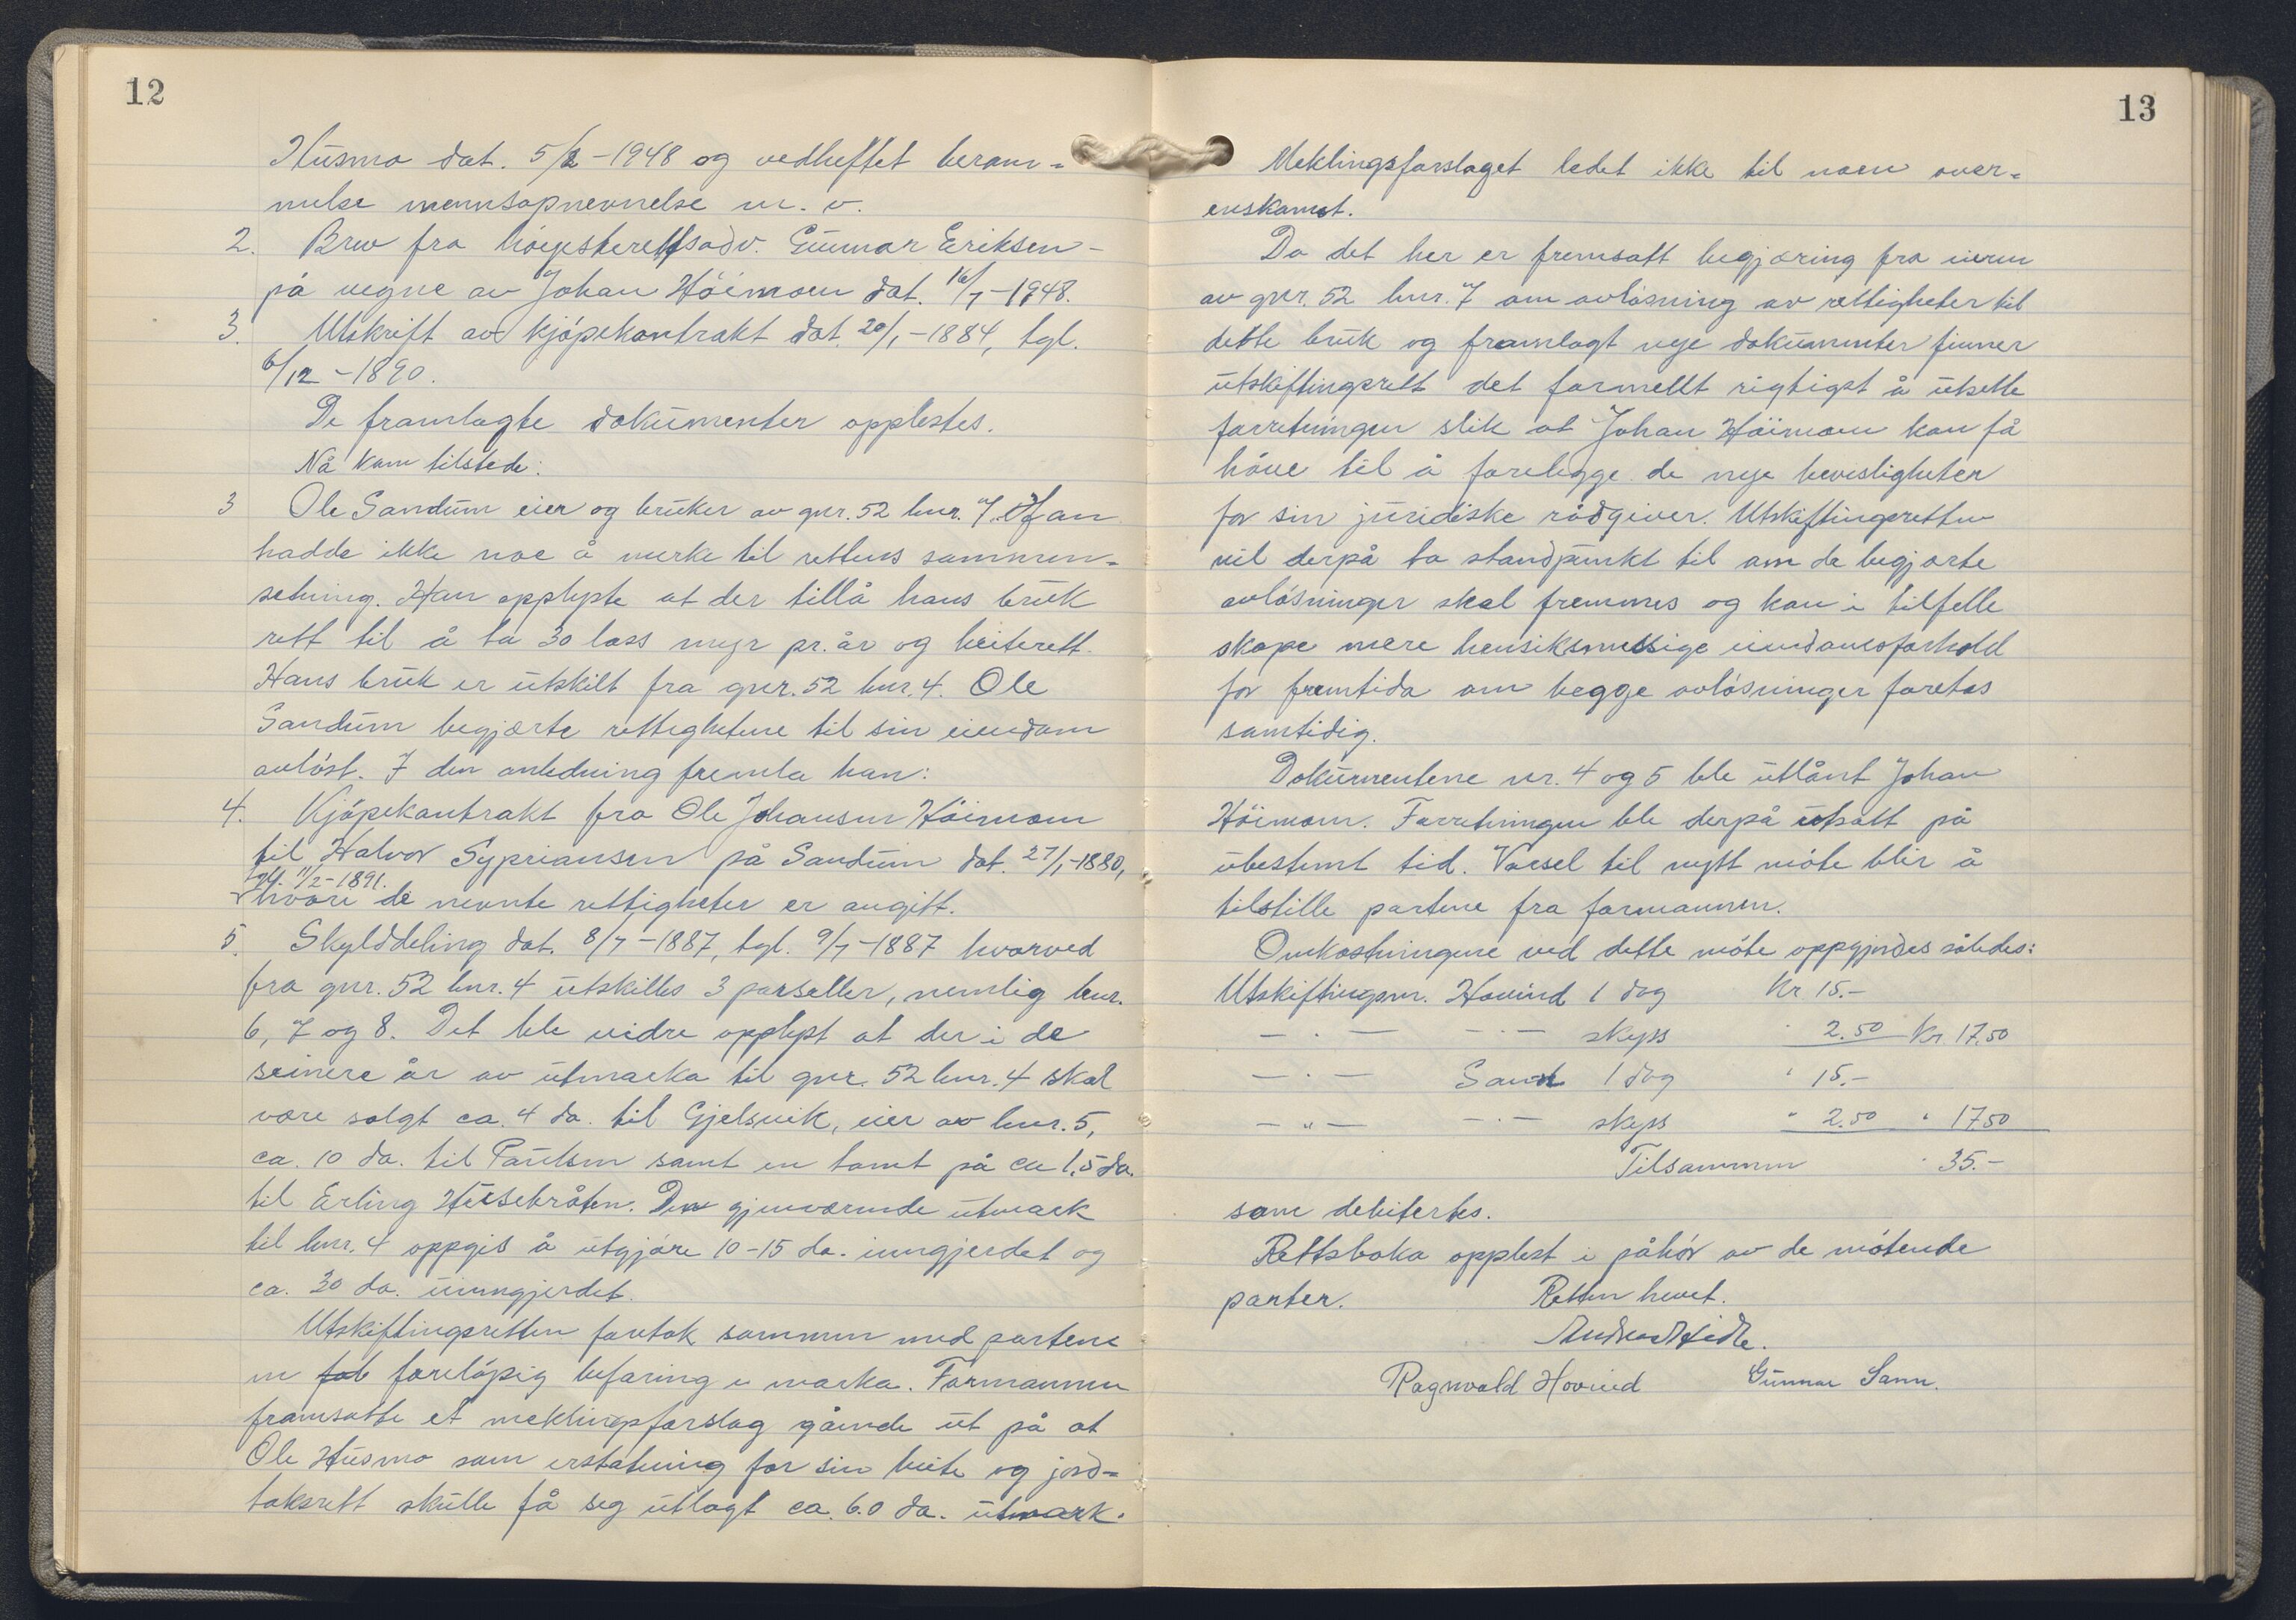 12
Husmo dat. 5/2-1948 og vedheftet beram-
melse mennsopnevnelse m. v.
2. Brev fra höyesterettsadv. Gunnar Eriksen -
på vegne av Johan Höimoen dat. 16/7-1948.
3. Utskrift av kjöpekontrakt dat. 20/1-1884, tgl.
6/12-1890.
De framlagte dokumenter opplestes.
Nå kom tilstede:
3 Ole Sandum eier og bruker av gnr. 52 bnr. 7. Han
hadde ikke noe å merke til rettens sammen-
setning. Han opplyste at der tillå hans bruk
rett til å ta 30 lass myr pr. år og beiterett.
Hans bruk er utskilt fra gnr. 52 bnr. 4. Ole
Sandum begjærte rettighetene til sin eiendom
avlöst. I den anledning fremla han:
4. Kjöpekontrakt fra Ole Johansen Höimoen
til Halvor Sypriansen på Sandum dat. 27/1-1880,
tgl. 11/2-1891.
hvori de nevnte rettigheter er angitt.
5. Skylddeling dat. 8/7-1887, tgl. 9/7-1887 hvorved
fra gnr. 52 bnr. 4 utskilles 3 parseller, nemlig bnr.
6, 7 og 8. Det ble vidre opplyst at der i de
seinere år av utmarka til gnr. 52 bnr. 4 skal
være solgt ca. 4 da. til Gjelsvik, eier av bnr. 5,
ca. 10 da. til Paulsen samt en tomt på ca 1,5 da.
til Erling Huusebråten. Den gjenværende utmark
til bnr. 4 oppgis å utgjöre 10-15 da. inngjerdet og
ca. 30 da. uinngjerdet.
Utskiftingsretten foretok sammen med partene
en foreløpig befaring i marka. Formannen
framsatte et meklingsforslag gående ut på at
Ole Husmo som erstatning for sin beite og jord-
taksrett skulle få seg utlagt ca. 6.0 da. utmark.
13
Meklingsforslaget ledet ikke til noen over-
enskomst.
Da det her er fremsatt begjæring fra eieren
av gnr. 52 bnr. 7 om avlösning av rettigheter til
dette bruk og framlagt nye dokumenter finner
utskiftingsrett det formellt rigtigst å utsette
forretningen slik at Johan Höimoen kan få
höve til å forelegge de nye bevisligheter
for sin juridiske rådgiver. Utskiftingsretten
vil derpå ta standpunkt til om de begjærte
avlösninger skal fremmes og kan i tilfelle
skape mere hensiksmessige eiendomsforhold
for fremtida om begge avlösninger foretas
samtidig.
Dokumentene nr. 4 og 5 ble utlånt Johan
Höimoen. Forretningen ble derpå utsatt på
ubestemt tid. Varsel til nytt möte blir å
tilstille partene fra formannen.
Omkostningene ved dette möte oppgjordes således:
Utskiftingsm. Hovind 1 dag Kr. 15.-
- . - - . - skyss " 2.50 Kr. 17.50
- . - Sann 1 dag " 15.-
- " - - . - skyss " 2.50 " 17.50
Tilsammen " 35.-
som debitertes.
Rettsboka opplest i påhör av de mötende
parter. Retten hevet.
Ragnvald Hovind Gunnar Sann.